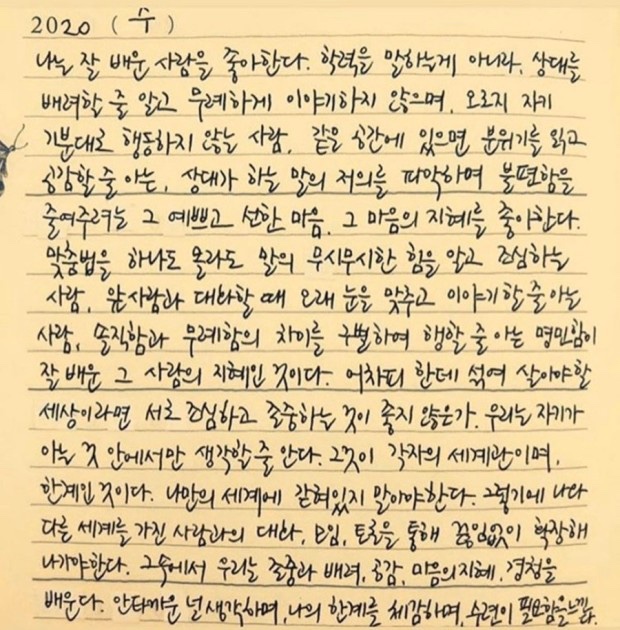 2020 ( 수 )
나는 잘 배운 사람을 좋아한다. 학력을 말하는게 아니라, 상대를
배려할 줄 알고 무례하게 이야기하지 않으며, 오로지 자기
기분대로 행동하지 않는 사람, 같은 공간에 있으면 분위기를 읽고
공감할 줄 아는, 상대가 하는 말의 저의를 파악하며 불편함을
줄여주려는 그 예쁘고 선한 마음, 그 마음의 지혜를 좋아한다.
맞춤법을 하나도 몰라도 말의 무시무시한 힘을 알고 조심하는
사람, 앞사람과 대화할 때 오래 눈을 맞추고 이야기 할 줄 아는
사람, 솔직함과 무례함의 차이를 구별하여 행할 줄 아는 명민함이
잘 배운 그 사람의 지혜인 것이다. 어차피 한데 섞여 살아야할
세상이라면 서로 조심하고 존중하는 것이 좋지 않은가. 우리는 자기가
아는 것 안에서만 생각할 줄 안다. 그것이 각자의 세계관이며,
한계인 것이다. 나만의 세계에 갇혀있지 말아야한다. 그렇기에 나와
다른 세계를 가진 사람과의 대화, 모임, 토론을 통해 끊임없이 확장해
나가야한다. 그속에서 우리는 존중과 배려, 공감, 마음의지혜, 경청을
배운다. 안타까운 널 생각하며, 나의 한계를 체감하며, 수련이 필요함을느낀다.